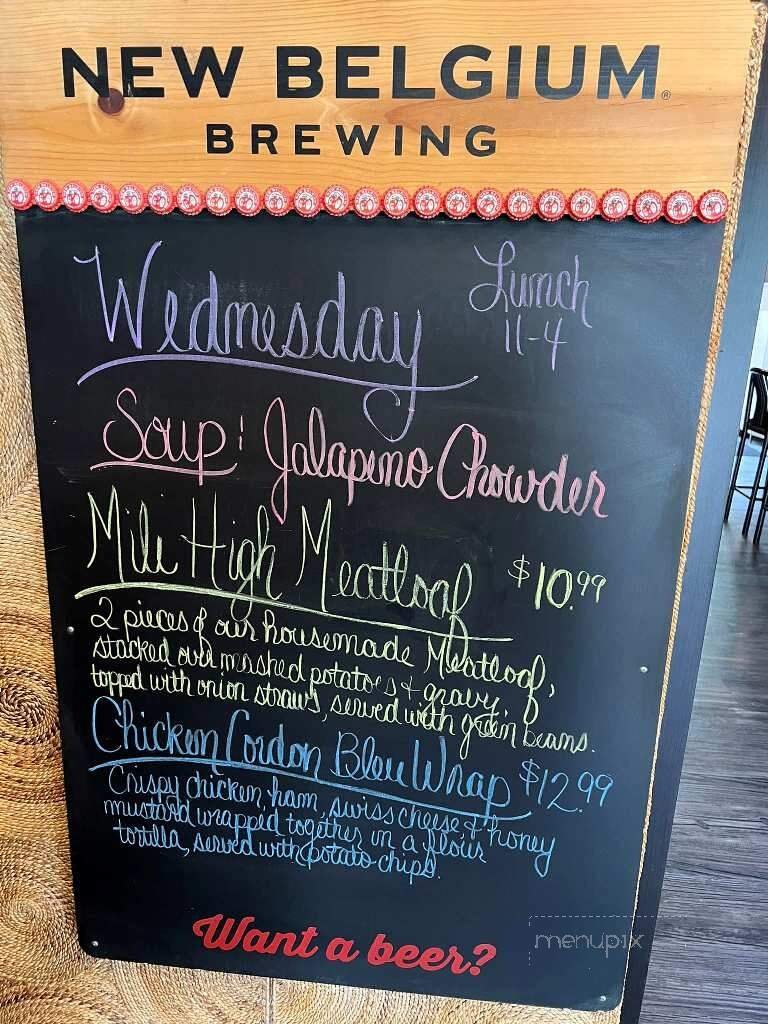 NEW BELGIUM®
BREWING
Wednesday
Lunch
11-4
Soup: Jalapeno Chowder
Mile High Meatloaf $10.99
2 pieces of our housemade Meatloaf,
stacked over mashed potatoes & gravy,
topped with onion straws, served with green beans.
Chicken Cordon Bleu Wrap $12.99
Crispy chicken, ham, swiss cheese & honey
mustard wrapped together in a flour
tortilla, served with potato chips.
Want a beer?
menupix